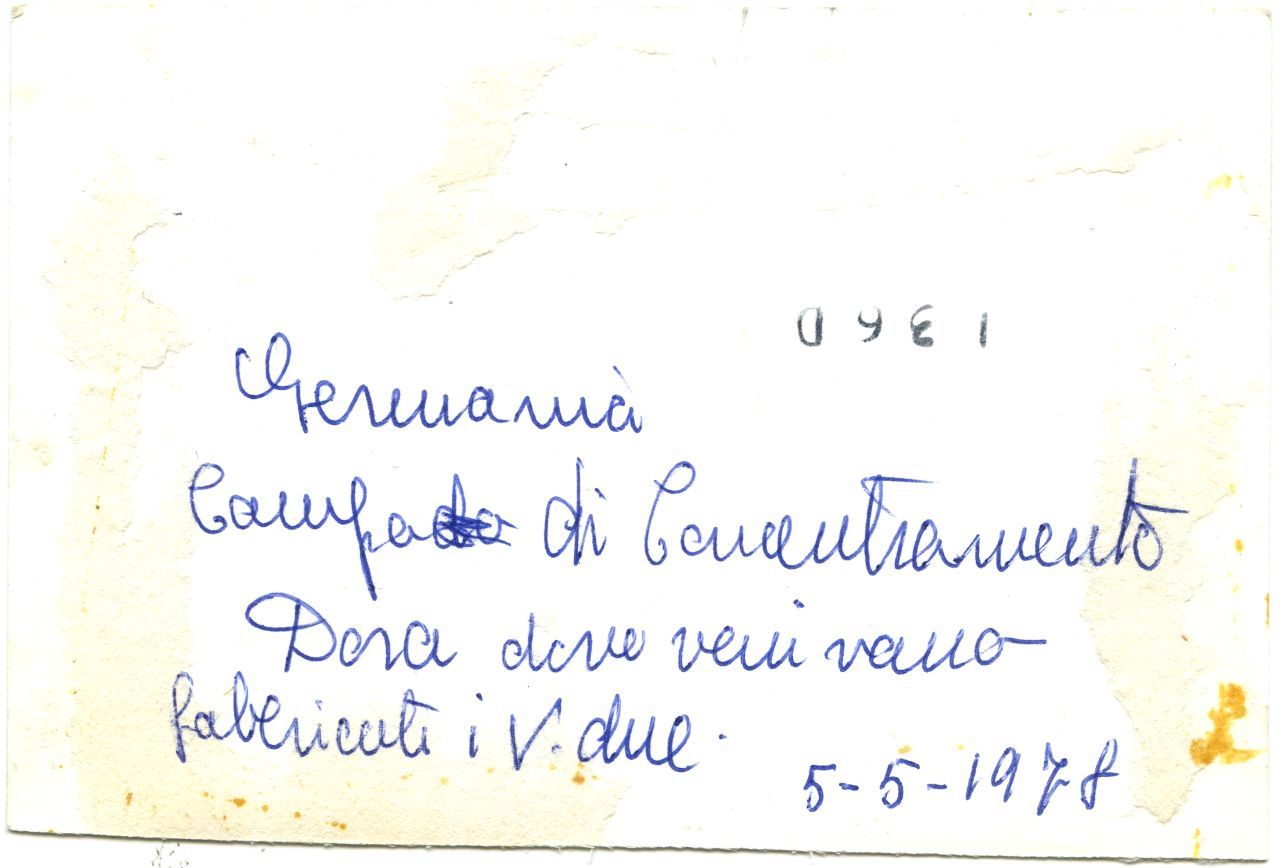 Germania
Campo di Concentramento
Dora dove venivano
fabericati i V. due.
5-5-1978